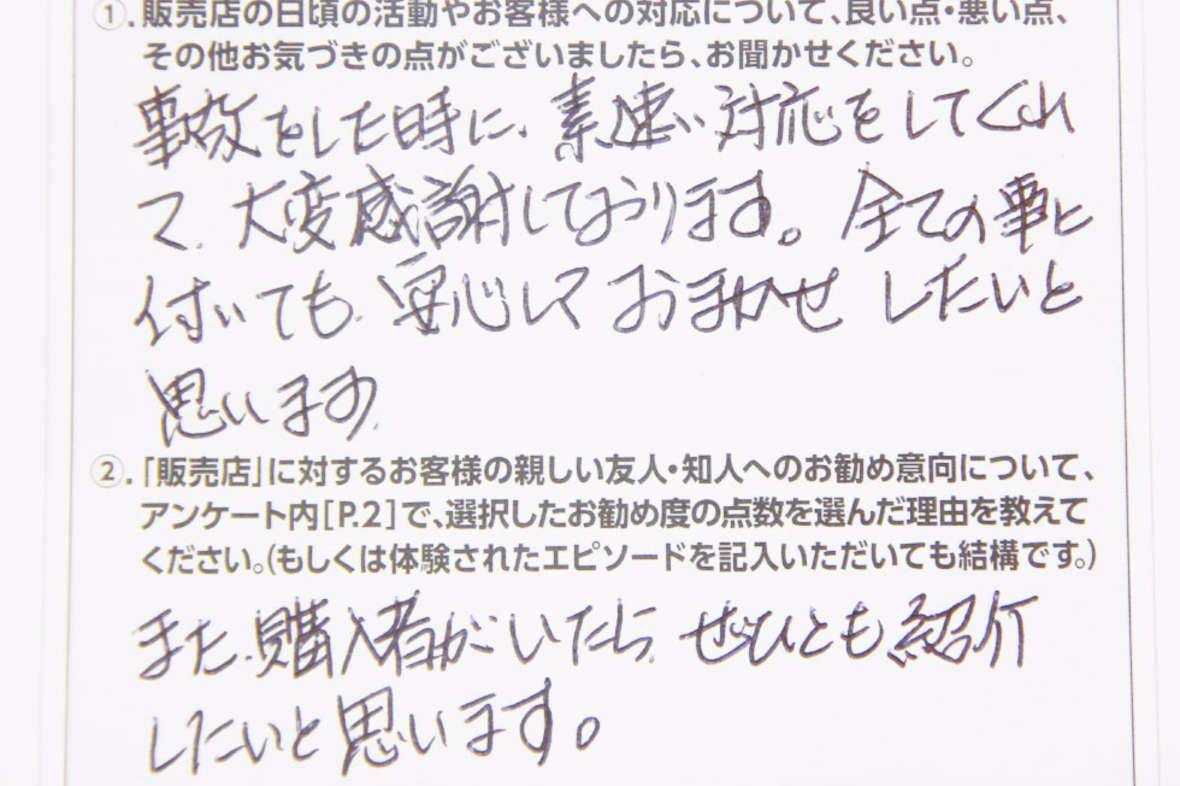 ①.販売店の日頃の活動やお客様への対応について、良い点・悪い点、
その他お気づきの点がございましたら、お聞かせください。
事故をした時に、素速い対応をしてくれ
て、大変感謝しております。全ての事に
付いても、安心しておまかせしたいと
思います。
②.「販売店」に対するお客様の親しい友人・知人へのお勧め意向について、
アンケート内[P.2]で、選択したお勧め度の点数を選んだ理由を教えて
ください。(もしくは体験されたエピソードを記入いただいても結構です。)
また、購入者がいたら、ぜひとも紹介
したいと思います。